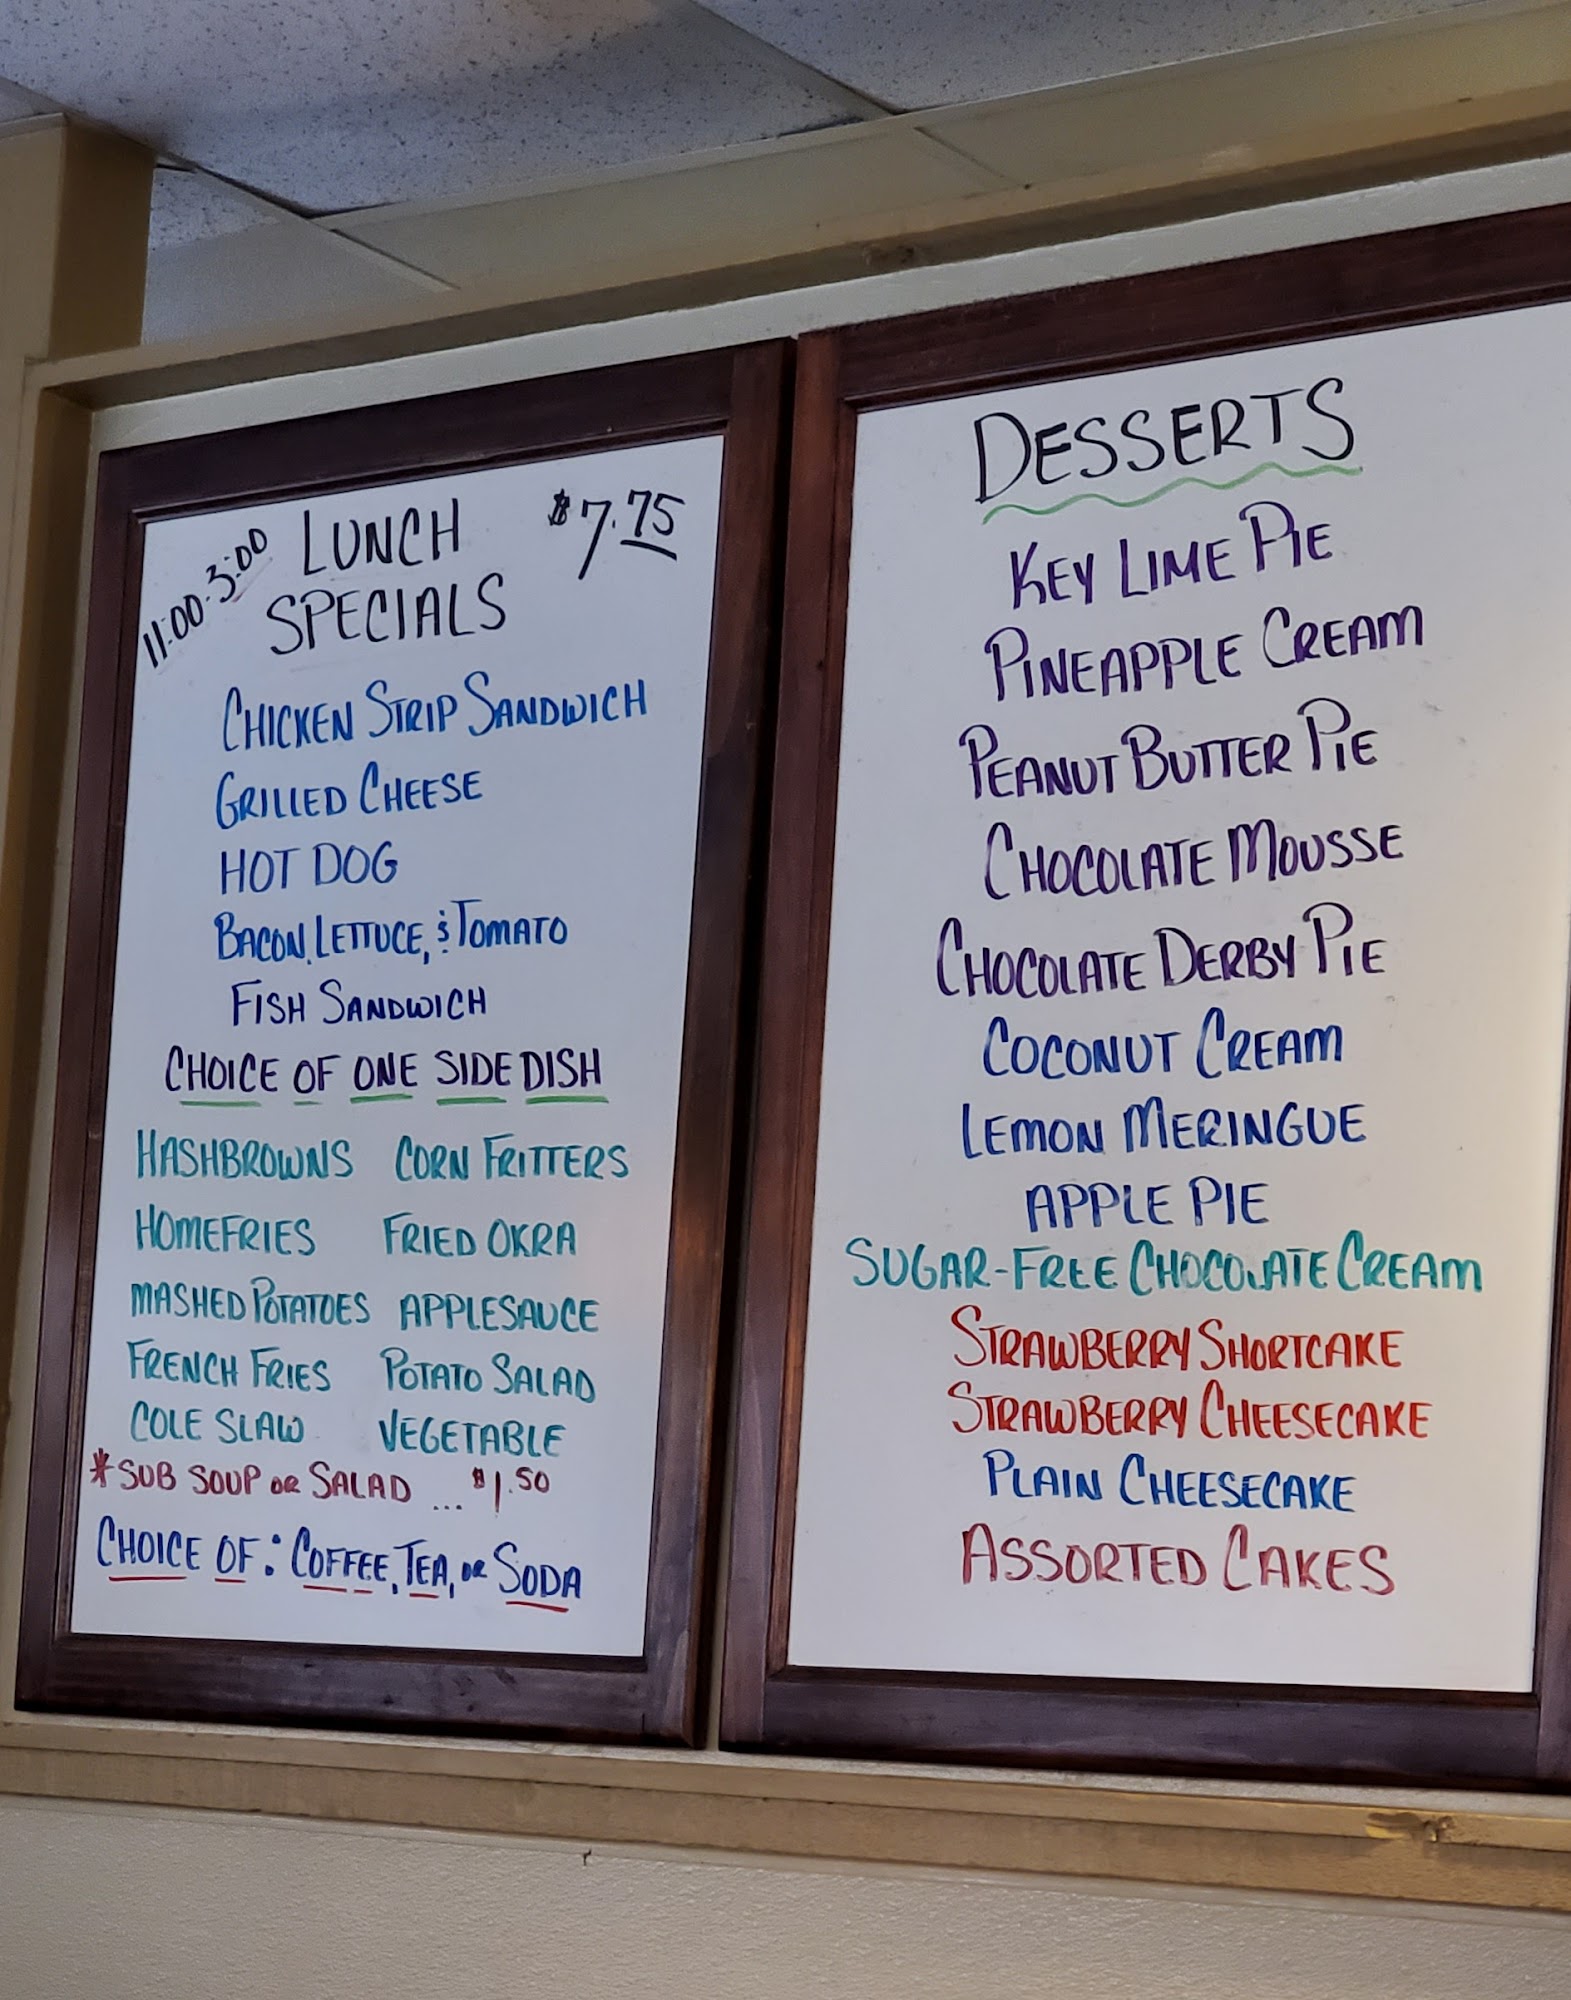 11:00-3:00
LUNCH $7.75
SPECIALS
CHICKEN STRIP SANDWICH
GRILLED CHEESE
HOT DOG
BACON, LETTUCE, & TOMATO
FISH SANDWICH
CHOICE OF ONE SIDE DISH
HASHBROWNS CORN FRITTERS
HOMEFRIES FRIED OKRA
MASHED POTATOES APPLESAUCE
FRENCH FRIES POTATO SALAD
COLE SLAW VEGETABLE
*SUB SOUP OR SALAD ... $1.50
CHOICE OF: COFFEE, TEA, OR SODA
DESSERTS
KEY LIME PIE
PINEAPPLE CREAM
PEANUT BUTTER PIE
CHOCOLATE MOUSSE
CHOCOLATE DERBY PIE
COCONUT CREAM
LEMON MERINGUE
APPLE PIE
SUGAR-FREE CHOCOLATE CREAM
STRAWBERRY SHORTCAKE
STRAWBERRY CHEESECAKE
PLAIN CHEESECAKE
ASSORTED CAKES